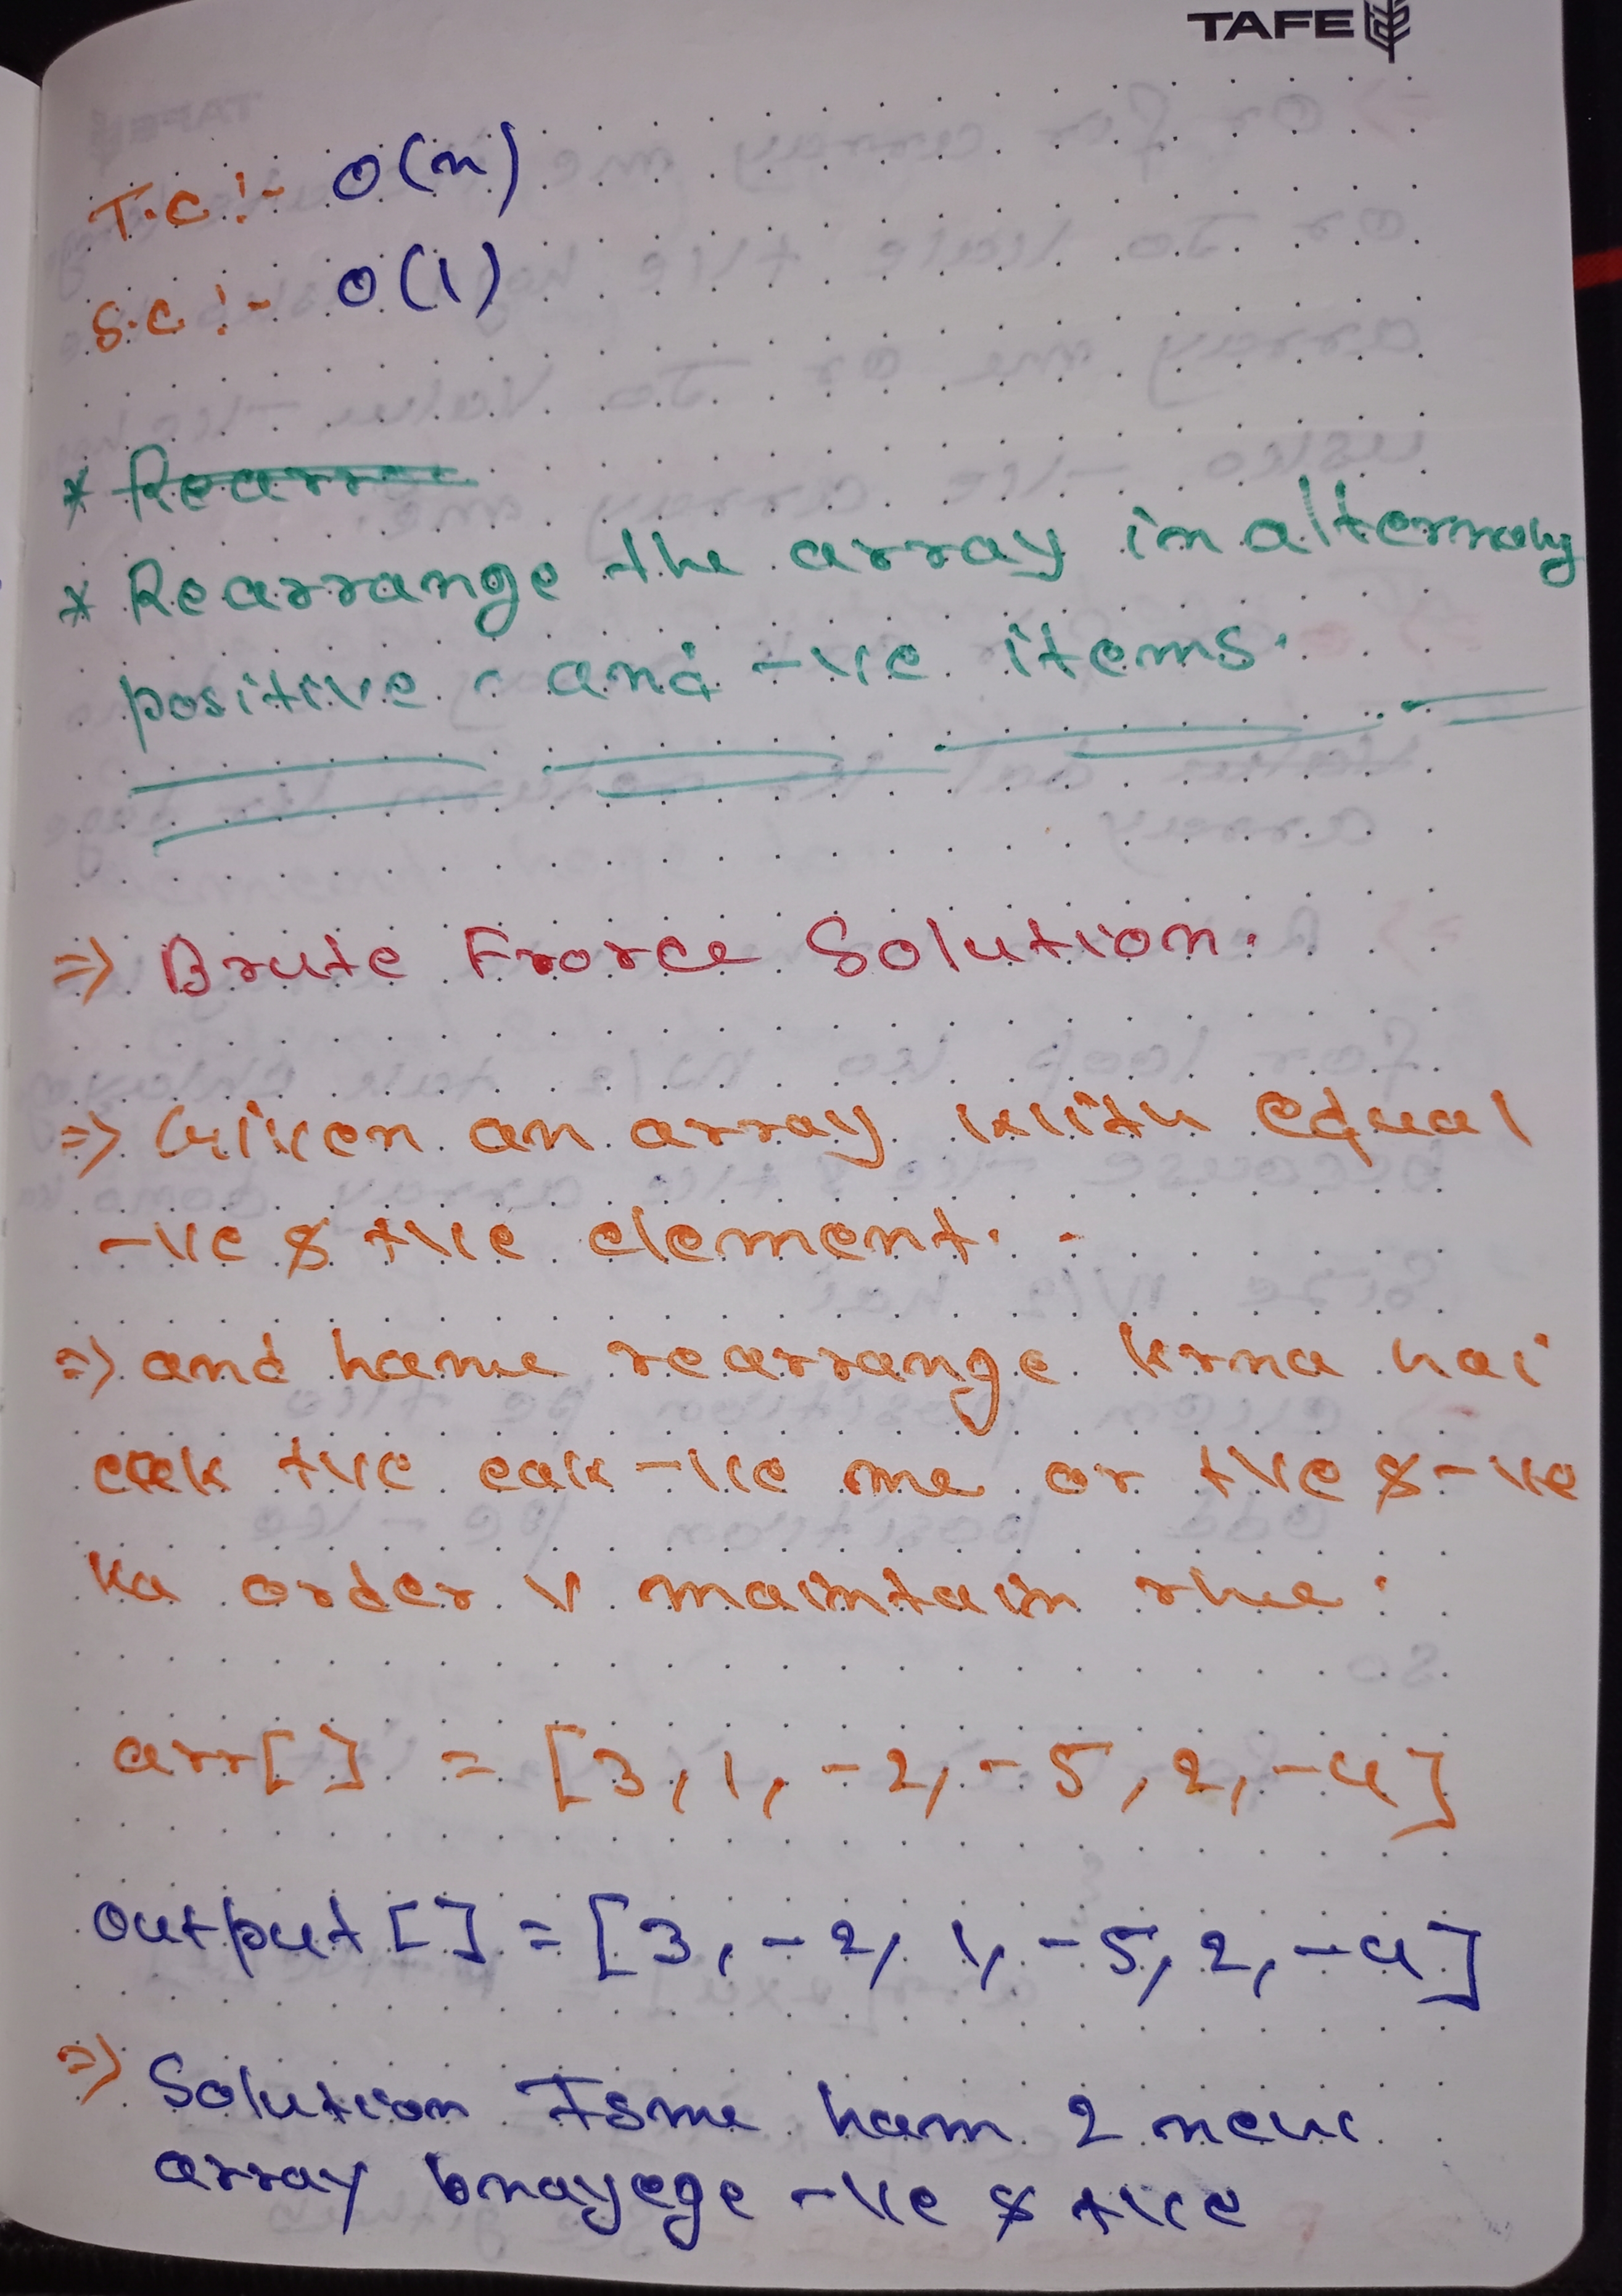 TAFE
T.C :- O(n)
S.C :- O(1)
* Rearra
* Rearrange the array in
positive and -ve items.
=> Brute Frorce Solution.
=> Given an array with equal
-ve & +ve element.
=> and hame rearrange krna hai
eak +ve eak -ve me or +ve & -ve
ka order v maintain rhe :
arr[] = [3, 1, -2, -5, 2, -4]
output [] = [3, -2, 1, -5, 2, -4]
=> Solution Isme ham 2 new
array bnayege -ve & +ve